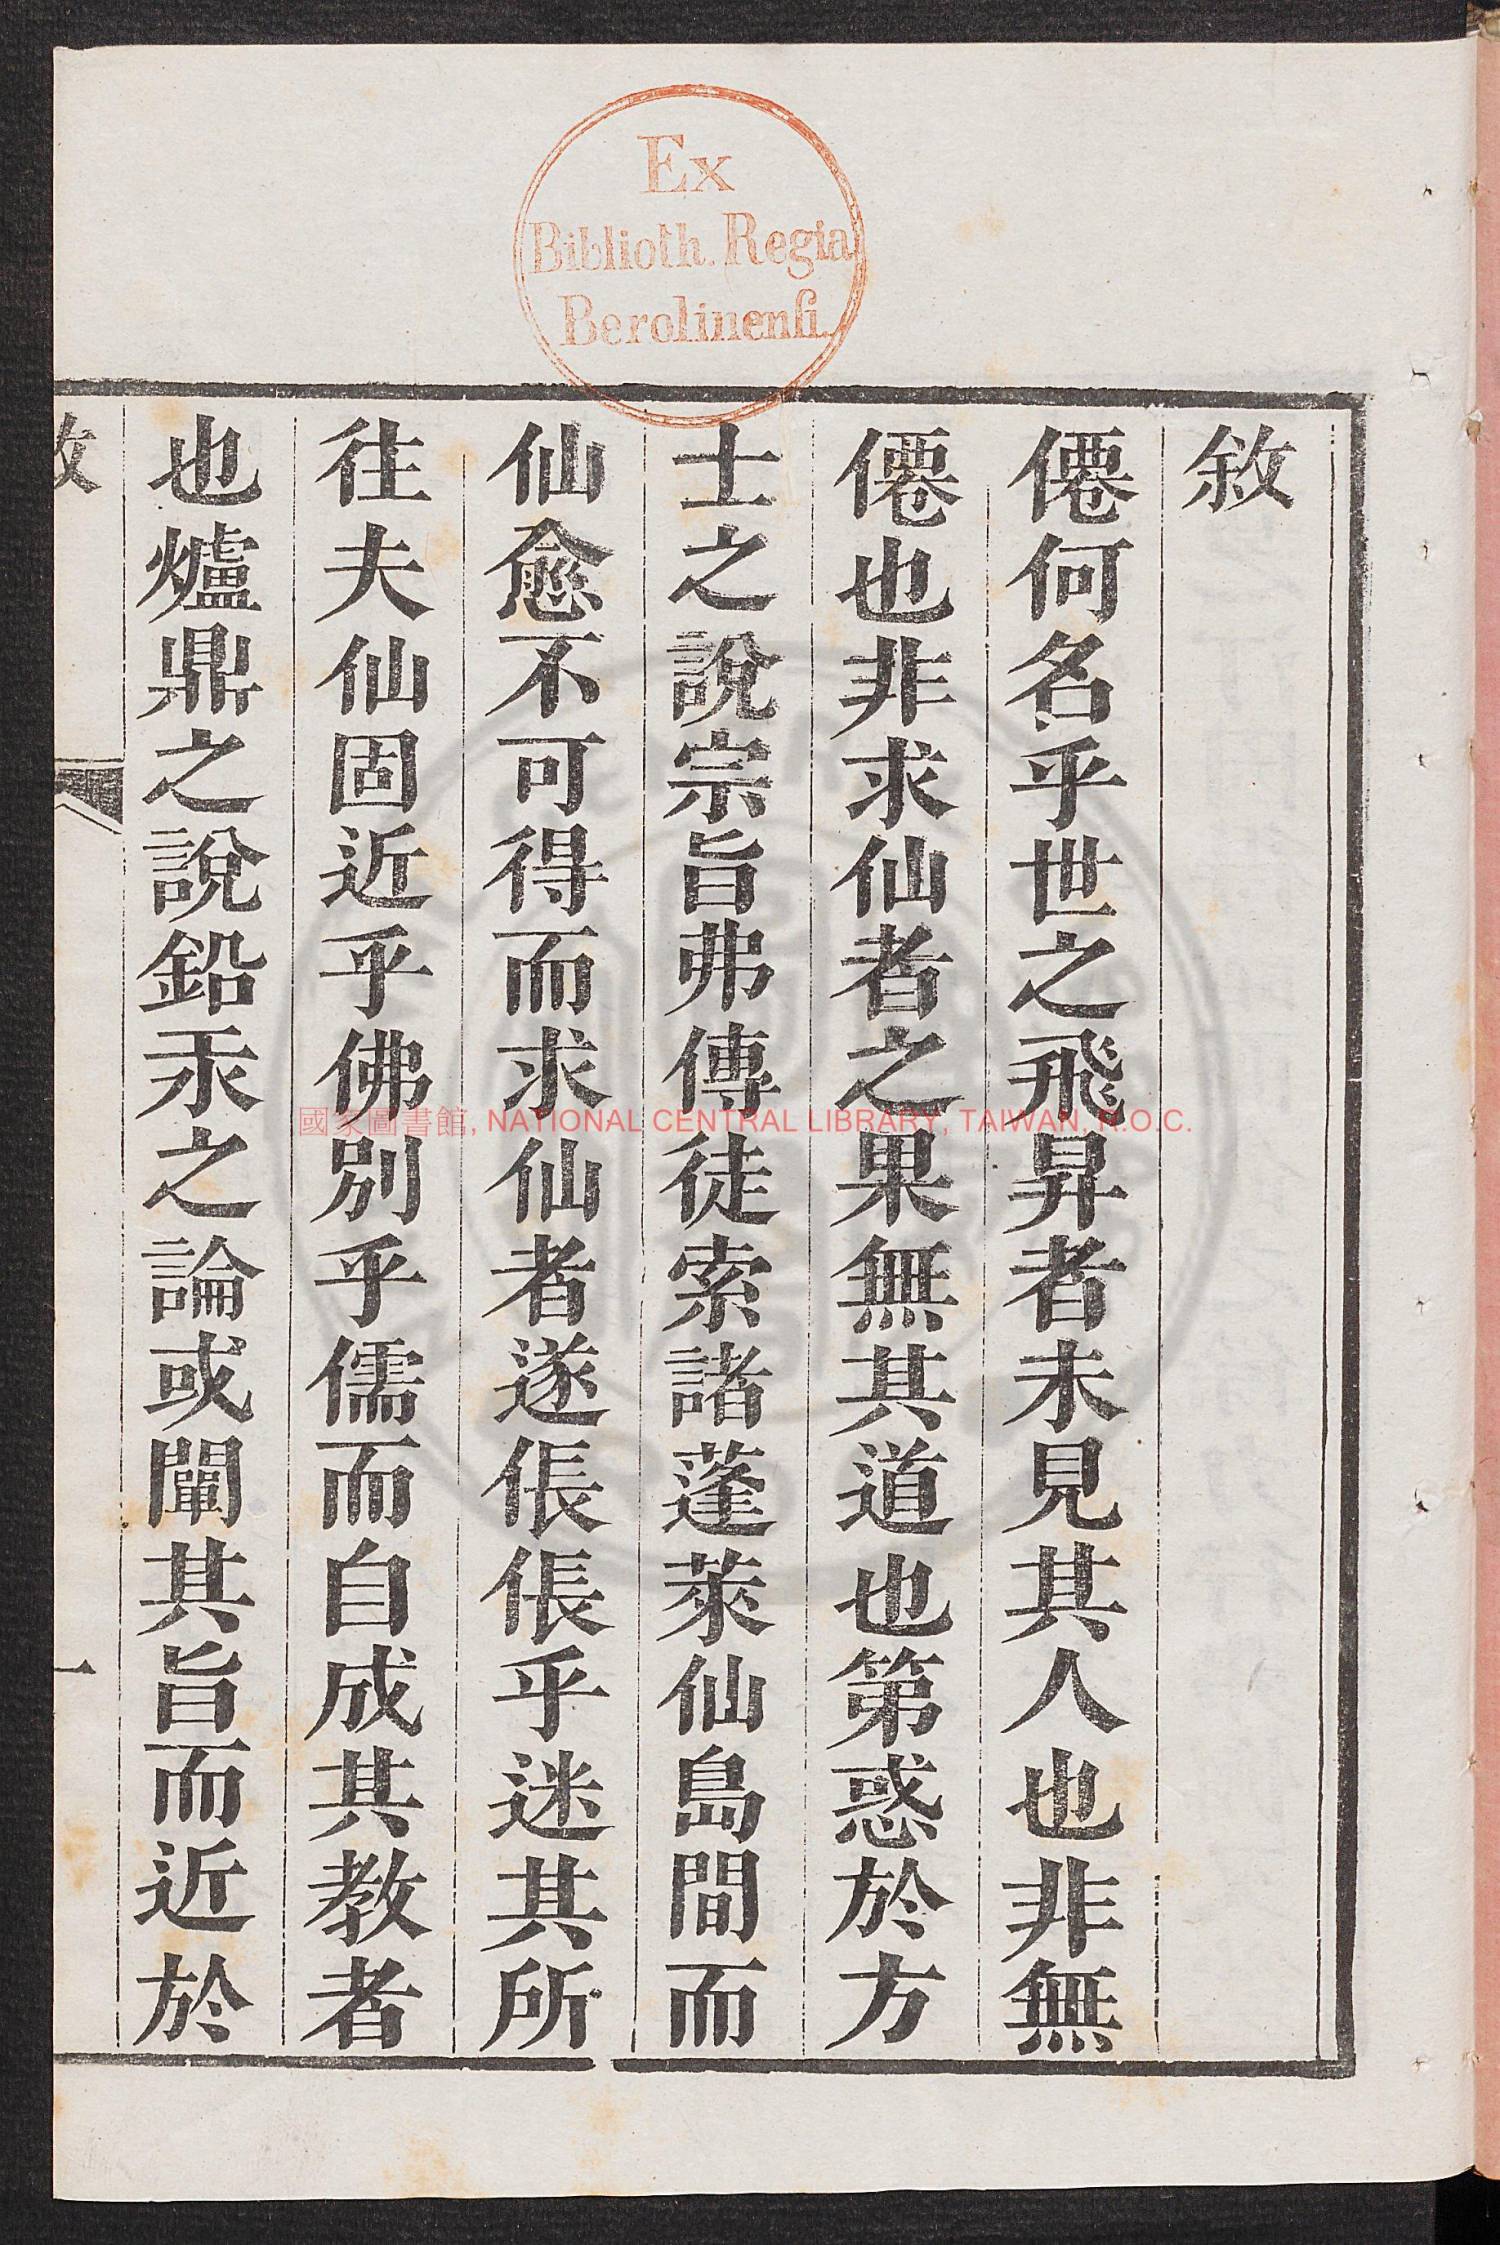 Ex
Biblioth. Regia
Berolinenſi.
敘
僊何名乎世之飛昇者未見其人也非無
僊也非求仙者之果無其道也第惑於方
士之說宗旨弗傳徒索諸蓬萊仙島間而
仙愈不可得而求仙者遂倀倀乎迷其所
往夫仙固近乎佛別乎儒而自成其教者
也爐鼎之說鉛汞之論或闡其旨而近於
敘
一
國家圖書館, NATIONAL CENTRAL LIBRARY, TAIWAN, R.O.C.